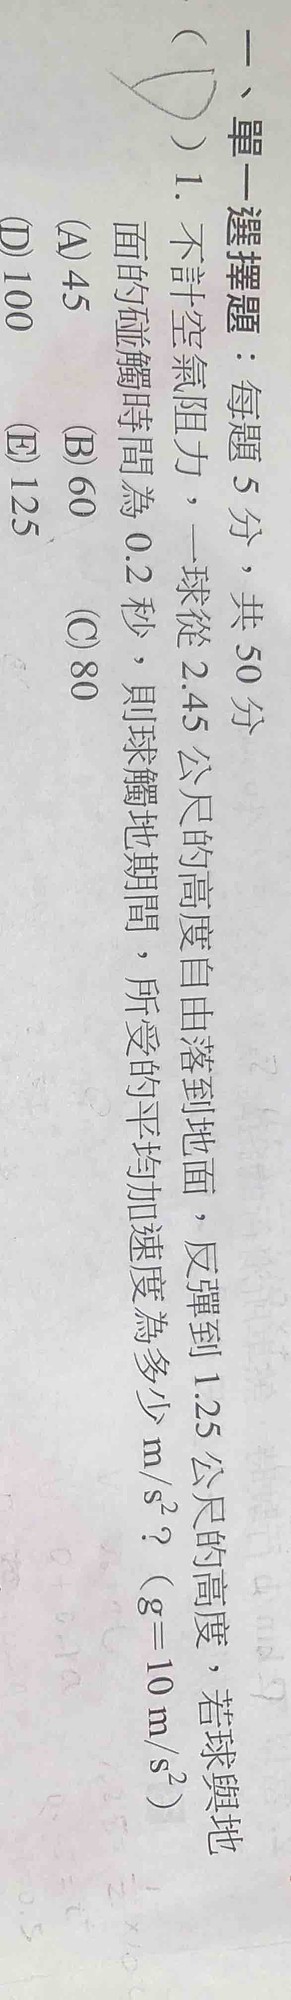 一、單一選擇題：每題 5 分，共 50 分
( D ) 1. 不計空氣阻力，一球從 2.45 公尺的高度自由落到地面，反彈到 1.25 公尺的高度，若球與地
面的碰觸時間為 0.2 秒，則球觸地期間，所受的平均加速度為多少 m/s²？（g＝10 m/s²）
(A) 45 (B) 60 (C) 80
(D) 100 (E) 125